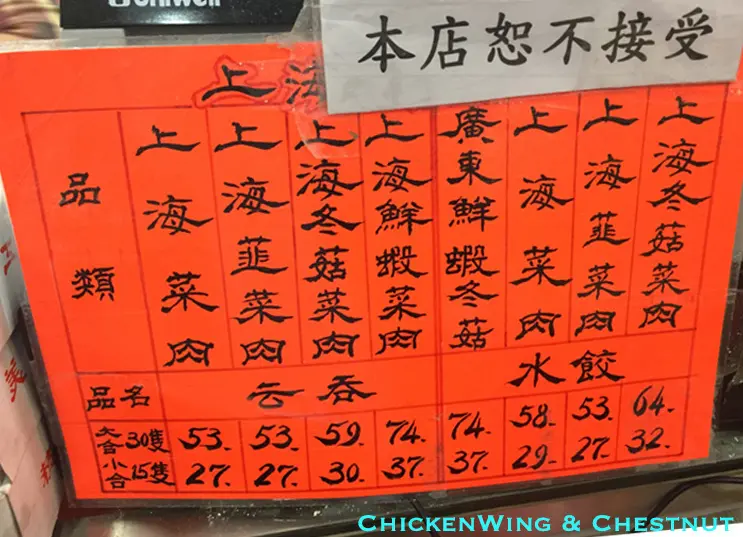 Uniwell
本店恕不接受
上海
品類
上海菜肉
上海韮菜肉
上海冬菇菜肉
上海鮮蝦菜肉
廣東鮮蝦冬菇
上海菜肉
上海韮菜肉
上海冬菇菜肉
品名 云吞 水餃
大合30隻 53. 53. 59. 74. 74. 58. 53. 64.
小合15隻 27. 27. 30. 37. 37. 29. 27. 32.
ChickenWing & Chestnut